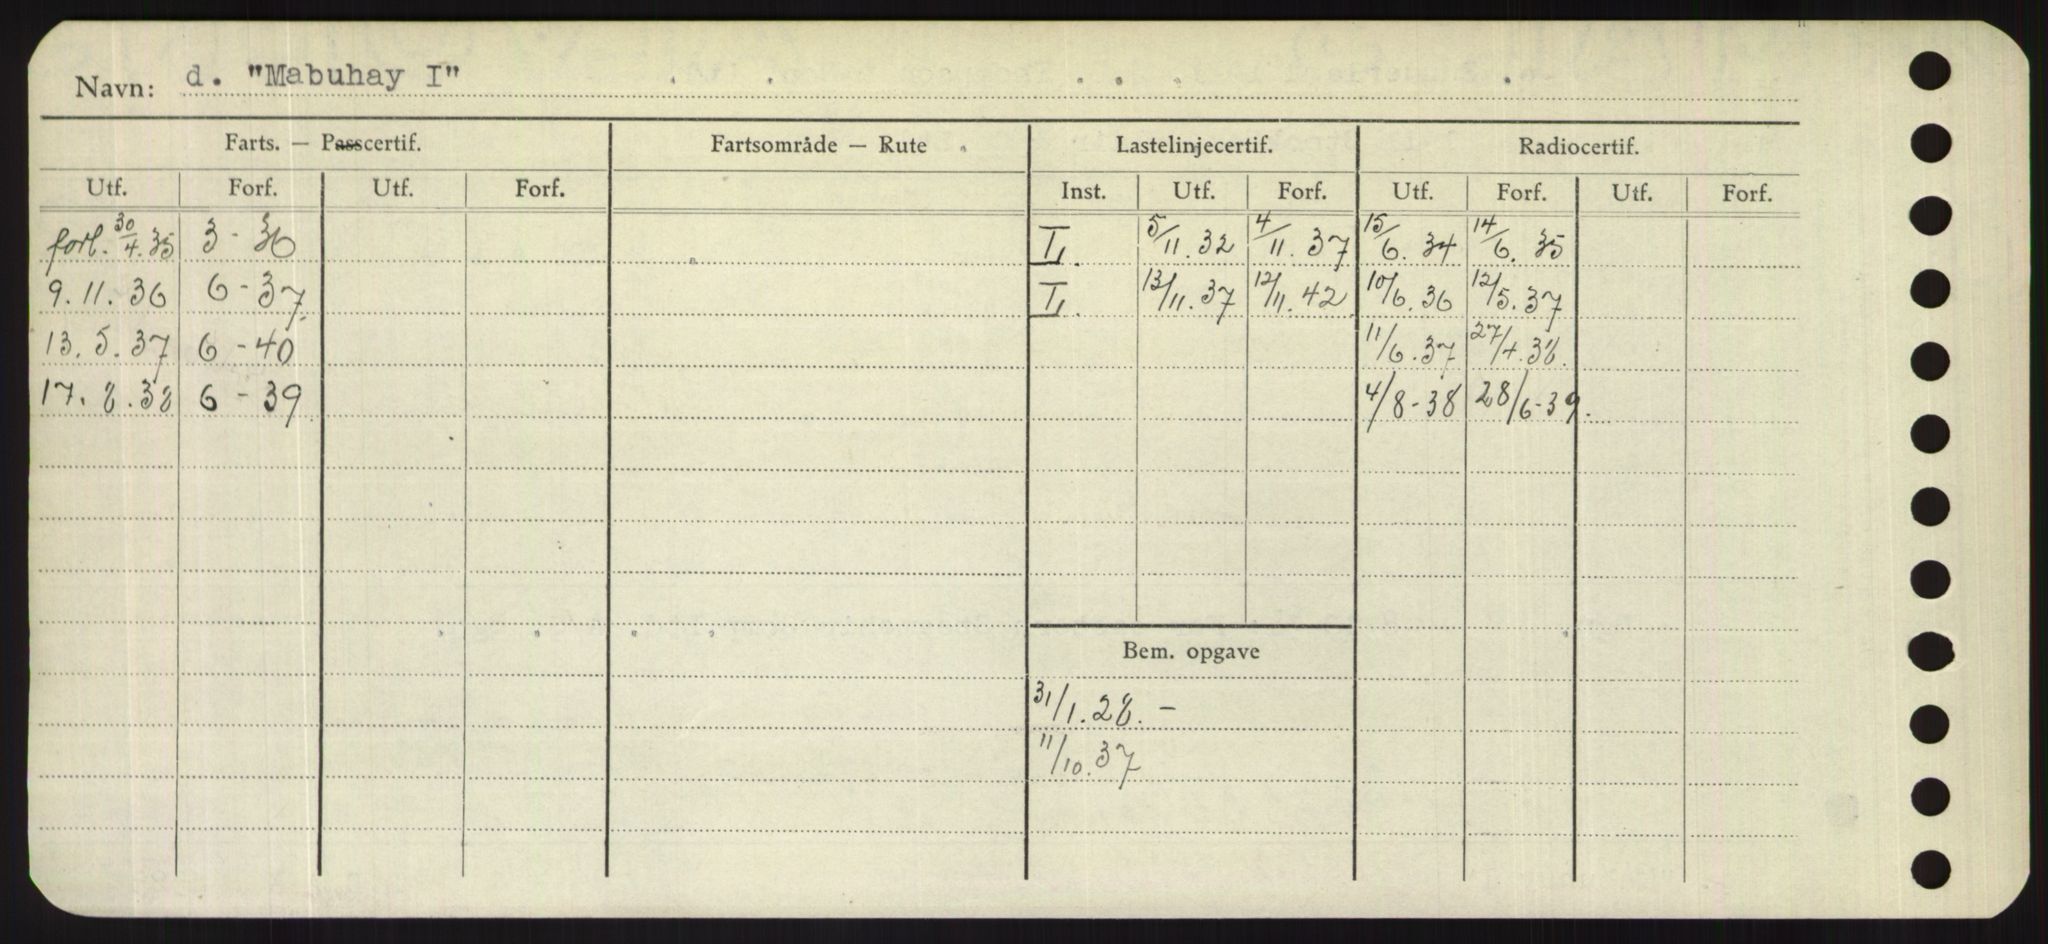 Navn: d. "Mabuhay I"
Farts. — Passcertif. Fartsområde — Rute Lastelinjecertif. Radiocertif.
Utf. Forf. Utf. Forf. Inst. Utf. Forf. Utf. Forf. Utf. Forf.
forl. 30/4. 35 3 - 36 I. 5/11. 32 4/11. 37 15/6. 34 14/6. 35
9. 11. 36 6 - 37 I. 13/11. 37 12/11. 42 10/6. 36 12/5. 37
13. 5. 37 6 - 40 11/6. 37 27/4. 38.
17. 8. 38 6 - 39 4/8 - 38 28/6 - 39.
Bem. opgave
31/1. 28. —
11/10. 37